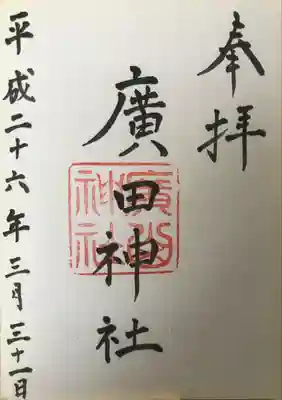 奉拝
廣田神社
廣田神社
平成二十六年三月三十一日